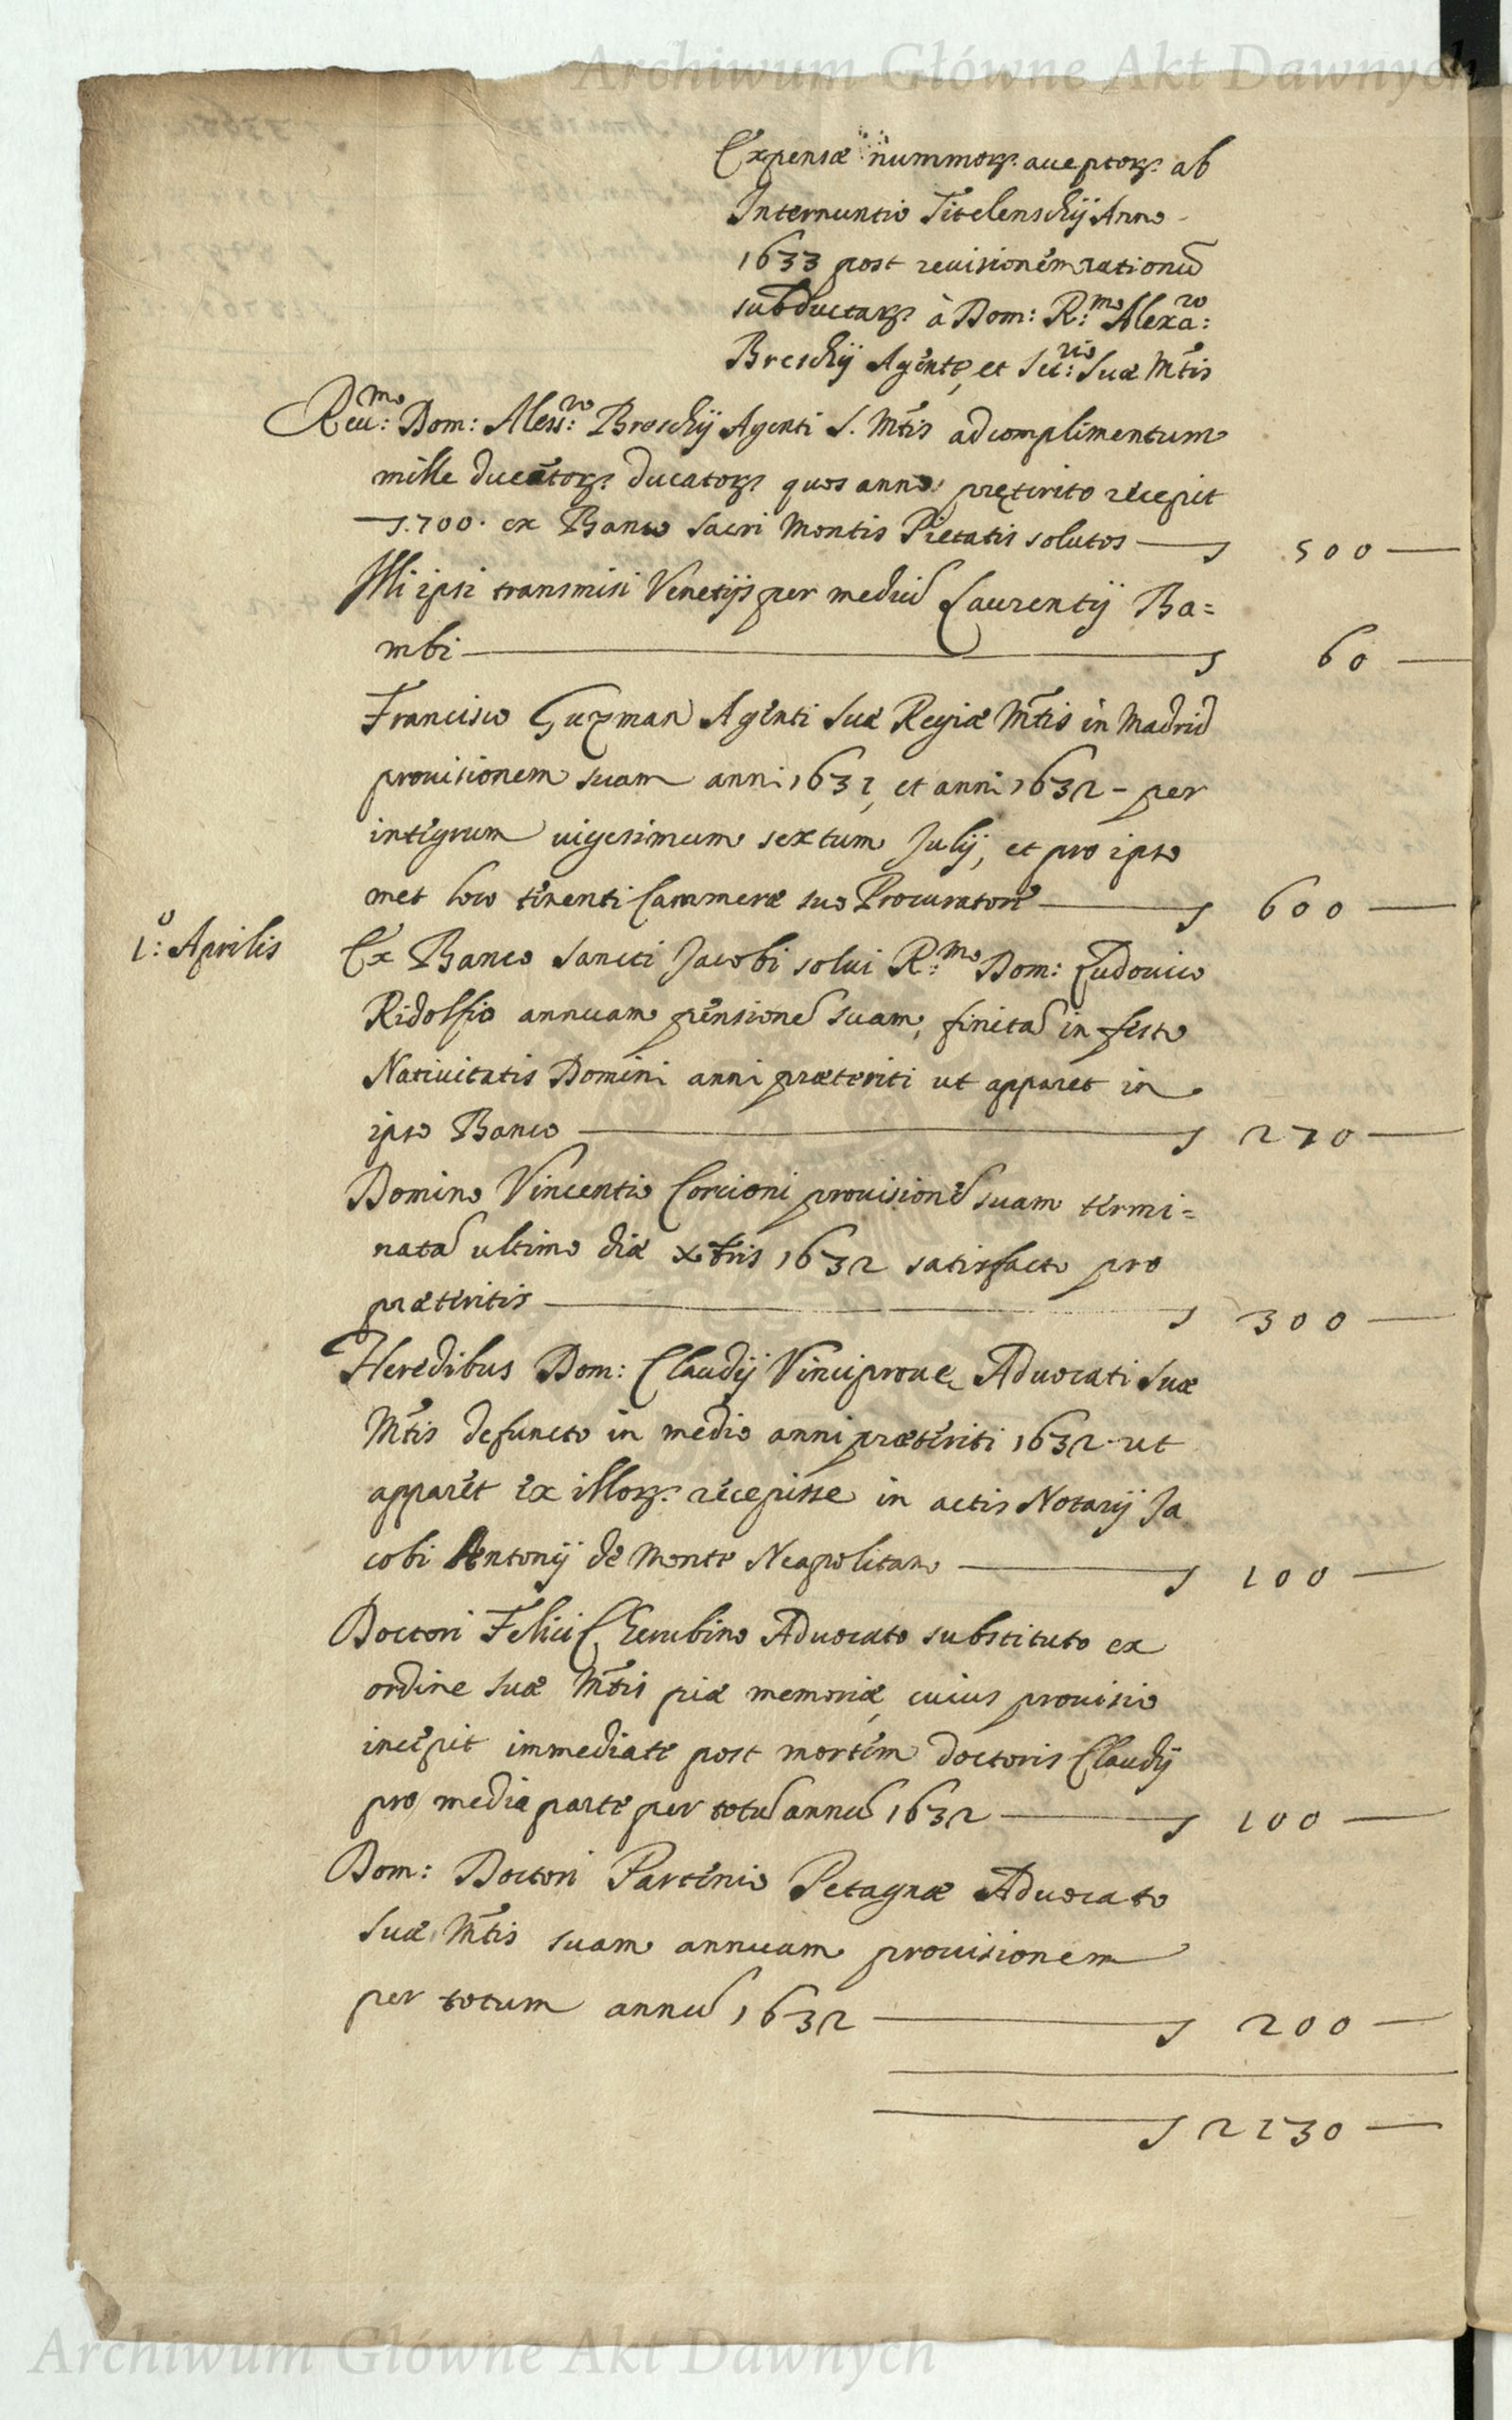 Archiwum Główne Akt Dawnych
Expensæ nummorꝝ acceptorꝝ ab
Internuntio Titelenschij Anno
1633 post reuisionem rationũ
subductarꝝ à Dom: R:mo Alexa:ro
Breschij Agente, et Sec:rio Suæ Mtis
Reu:mo Dom: Aless:ro Breschij Agenti S. Mtis ad complimentum
mille ducētorꝝ ducatorꝝ quos anno præterito recepit
700. ex Banco Sacri Montis Pietatis solutos — 500 —
Illi ipsi transmisi Venetijs per mediũ Laurentij Ba=
mbi — 60 —
Francisco Guzman Agenti Suæ Regiæ Mtis in Madrid
prouisionem suam anni 1631, et anni 1632 - per
integrum uigesimum sextum Julij, et pro ipso
met loco tenenti Cammeræ suo Procuratori — 600 —
1:o Aprilis
Ex Banco Sancti Jacobi solui R:mo Dom: Ludouico
Ridolfio annuam pensionẽ suam, finitã in festo
Natiuitatis Domini anni præteriti ut apparet in
ipso Banco — 270 —
Domino Vincentio Corcioni prouisionẽ suam termi=
natã ultimo die xbris 1632 satisfacto pro
præteritis — 300 —
Heredibus Dom: Claudij Vinciproue Aduocati Suæ
Mtis defuncto in medio anni præteriti 1632 ut
apparet ex illorꝝ recepisse in actis Notarij Ja
cobi Antonij de Monte Neapolitano — 100 —
Doctori Felici Cherubino Aduocato substituto ex
ordine Suæ Mtis piæ memoriæ, cuius prouisio
incepit immediate post mortem doctoris Claudij
pro media parte per totũ annũ 1632 — 100 —
Dom: Doctori Partenio Petagnæ Aduocato
Suæ Mtis suam annuam prouisionem
per totum annũ 1632 — 200 —
2130 —
Archiwum Główne Akt Dawnych